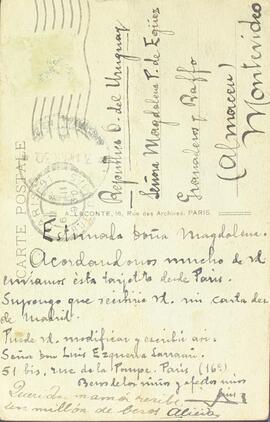 CARTE POSTALE
A. LECONTE, 16, Rue des Archives, PARIS
República O. del Uruguay
Señora Magdalena P. de Egüez
Granaderos y Baffo
(Almacen)
Montevideo
Estimada doña Magdalena.
Acordandonos mucho de Vd
enviamos esta tarjeta desde Paris.
Supongo que recibirio Vd. mi carta des
de Madrid.
Puede Vd. modificar y escribir asi:
Señor Don Luis Ezquerra
51 bis, rue de la Pompe. Paris (16e)
Besos de los niños y afectos mios
Querida mamá recibe
un millón de besos Alicia